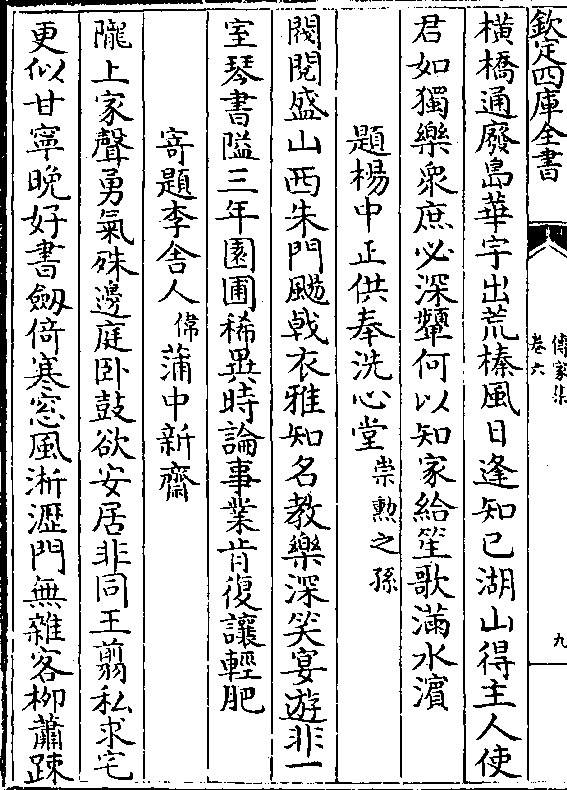 欽定四庫全書
傳家集
卷六
九
橫橋通廢島華宇出荒榛風日逢知已湖山得主人使
君如獨樂衆庶必深顰何以知家給笙歌滿水濱
題楊中正供奉洗心堂崇勲之孫
閥閱盛山西朱門颺戟衣雅知名教樂深笑宴遊非一
室琴書隘三年園圃稀異時論事業肯復讓輕肥
寄題李舍人偉蒲中新齋
隴上家聲勇氣殊邊庭卧鼓欲安居非同王翦私求宅
更似甘寧晚好書劔倚寒窓風淅瀝門無雜客柳蕭踈